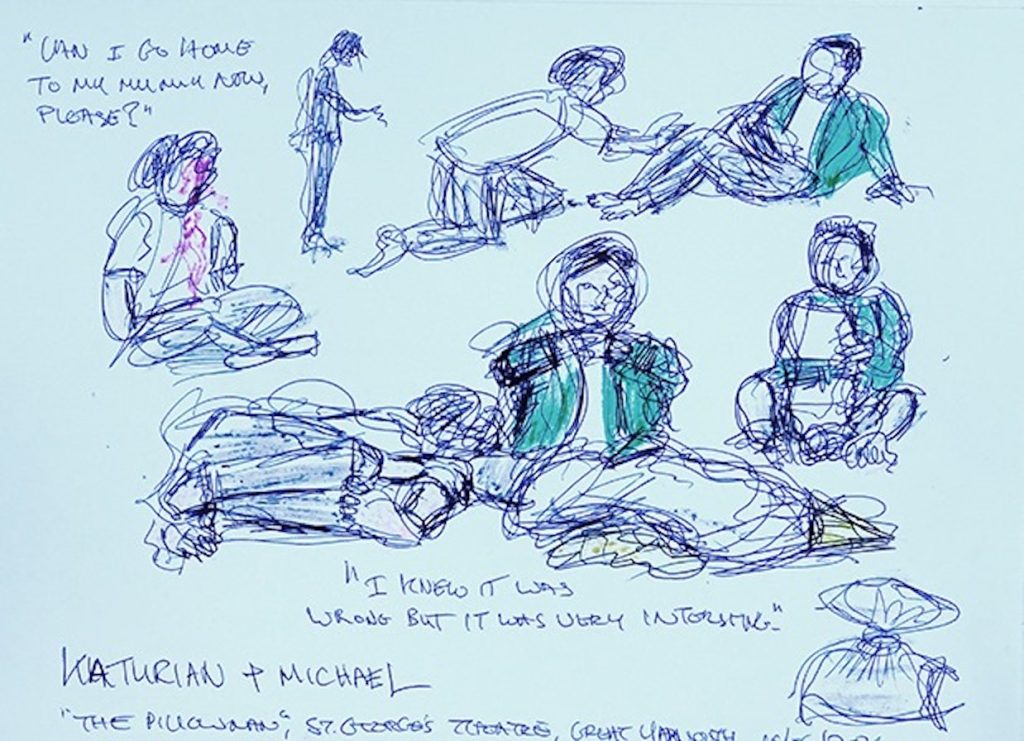 "CAN I GO HOME
TO MY MUMMY NOW,
PLEASE?"
"I KNEW IT WAS
WRONG BUT IT WAS VERY INTERESTING."
KATURIAN + MICHAEL
"THE PILLOWMAN", ST. GEORGE'S THEATRE, GREAT YARMOUTH